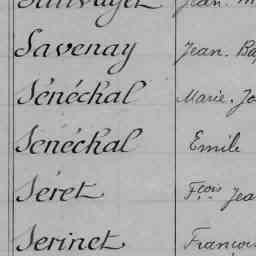 Sauvaget Jean.
Savenay Jean. Ba
Sénéchal Marie. Jo
Senéchal Emile
Séret Fçois Jea
Serinet François